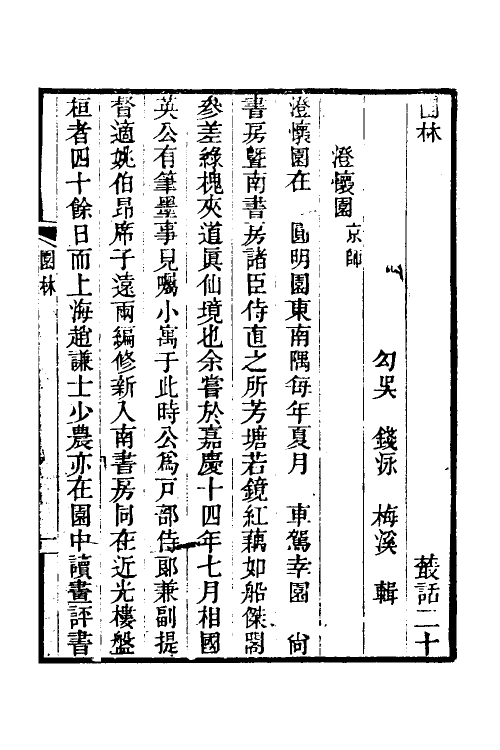 園林 叢話二十
勾吳 錢泳 梅溪 輯
澄懷園 京師
澄懷園在 圓明園東南隅每年夏月 車駕幸園 尙
書房暨南書房諸臣侍直之所芳塘若鏡紅藕如船傑閣
參差綠槐夾道眞仙境也余嘗於嘉慶十四年七月相國
英公有筆墨事見囑小寓于此時公爲戸部侍郞兼副提
督適姚伯昂席子遠兩編修新入南書房同在近光樓盤
桓者四十餘日而上海趙謙士少農亦在園中讀畫評書
園林